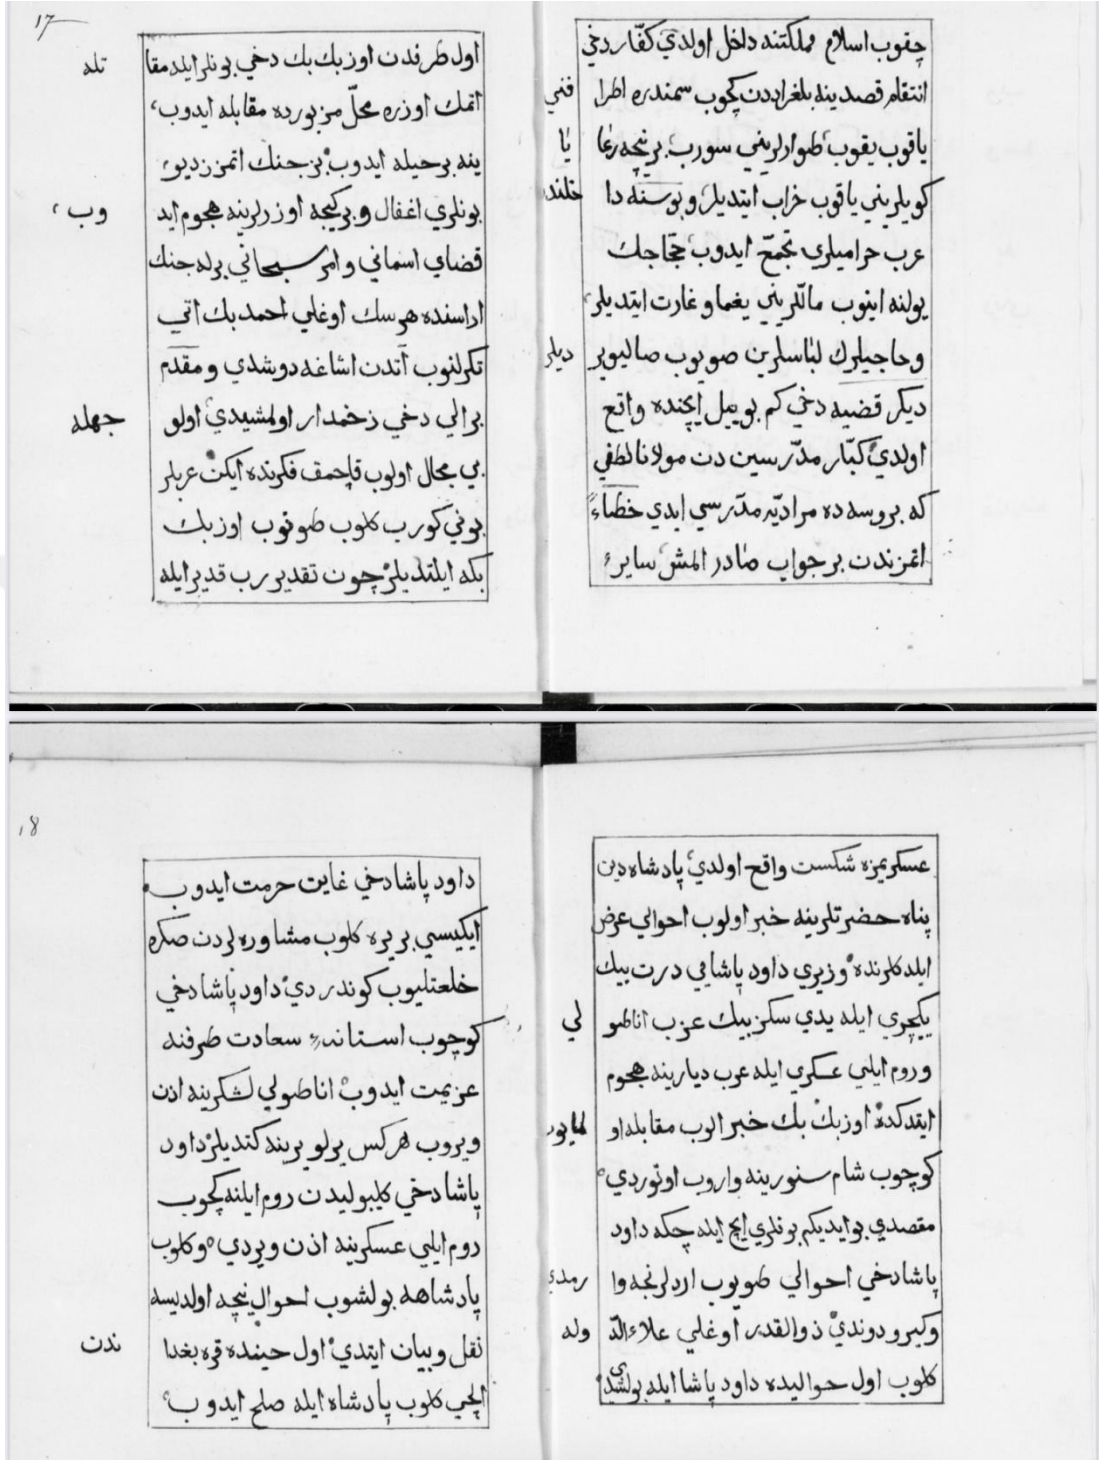 چقوب اسلام مملكتنه داخل اولدي كفّار دخي
انتقام قصدينه بلغراددن كچوب سمندره اطرا فني
ياقوب يقوب طوارلريني سورب برنيچه رعا يا
كويلريني ياقوب خراب ايتديلر وبوسنه دا خلنده
عرب حراميلري تجمّع ايدوب حجّاجك
يولنه اينوب ماللريني يغما و غارت ايتديلر
وحاجيلرك لباسلرين صويوب صاليوير ديلر
ديكر قضيه دخي كم بوييل ايچنده واقع
اولدي كبّار مدرّسين دن مولانا لطفي
كه بروسه ده مراديّه مدرّسي ايدي خطاءً
اتمزندن بر جواب صادر المش ساير
١٧
اول طرفدن اوزبك بك دخي بونلر ايله مقا تله
اتمك اوزره محلّ مزبورده مقابله ايدوب
ينه بر حيله ايدوب بز جنك اتمزز ديو
بونلري اغفال و بر كيجه اوزرلرينه هجوم ايد وب
قضاي اسماني و امر سبحاني برله جنك
اراسنده هرسك اوغلي احمد بك اتي
تكرلنوب آتدن اشاغه دوشدي و مقدم
بر الي دخي زخمدار اولمشيدي اولو جهله
بي مجال اولوب قاچمق فكرنده ايكن عربلر
بوني كورب كلوب طوتوب اوزبك
بكه ايلتديلر چون تقدير رب قدير ايله
عسكريمزه شكست واقع اولدي پادشاه دين
پناه حضرتلرينه خبر اولوب احوالي عرض
ايلدكلرنده وزيري داود پاشايي درت بيك
يكيچري ايله يدي سكز بيك عزب اناطو لي
و روم ايلي عسكري ايله عرب ديارينه هجوم
ايتدكده اوزبك بك خبر الوب مقابله او لمايوب
كوچوب شام سنورينه واروب اوتوردي
مقصدي بو ايديكم بونلري ايچ ايله چكه داود
پاشا دخي احوالي طويوب اردلرنجه وا رمدي
وكيرو دوندي ذوالقدر اوغلي علاءالدّ وله
كلوب اول حواليده داود پاشا ايله بولشدي
١٨
داود پاشا دخي غايت حرمت ايدوب
ايكيسي بر يره كلوب مشاوره لردن صكره
خلعتليوب كوندردي داود پاشا دخي
كوچوب استانهٔ سعادت طرفنه
عزيمت ايدوب اناطولي لشكرينه اذن
ويروب هركس يرلو يرينه كتديلر داود
پاشا دخي كليبوليدن روم ايلنه كچوب
روم ايلي عسكرينه اذن ويردي و كلوب
پادشاهه بولشوب احوال نيچه اولديسه
نقل وبيان ايتدي اول حينده قره بغدا ندن
ايلچي كلوب پادشاه ايله صلح ايدوب